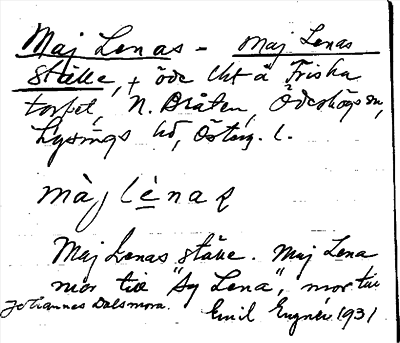 Maj Lenas - Maj Lenas
ställe, + öde lht å Friska
torpet, N. Bråten, Ödeshögs sn,
Lysings hd, Österg. l.
màj lènas
Maj Lenas ställe. Maj Lena
mor till "Aj Lena", mor till
Johannes Dalsmora. Emil Engnér 1931